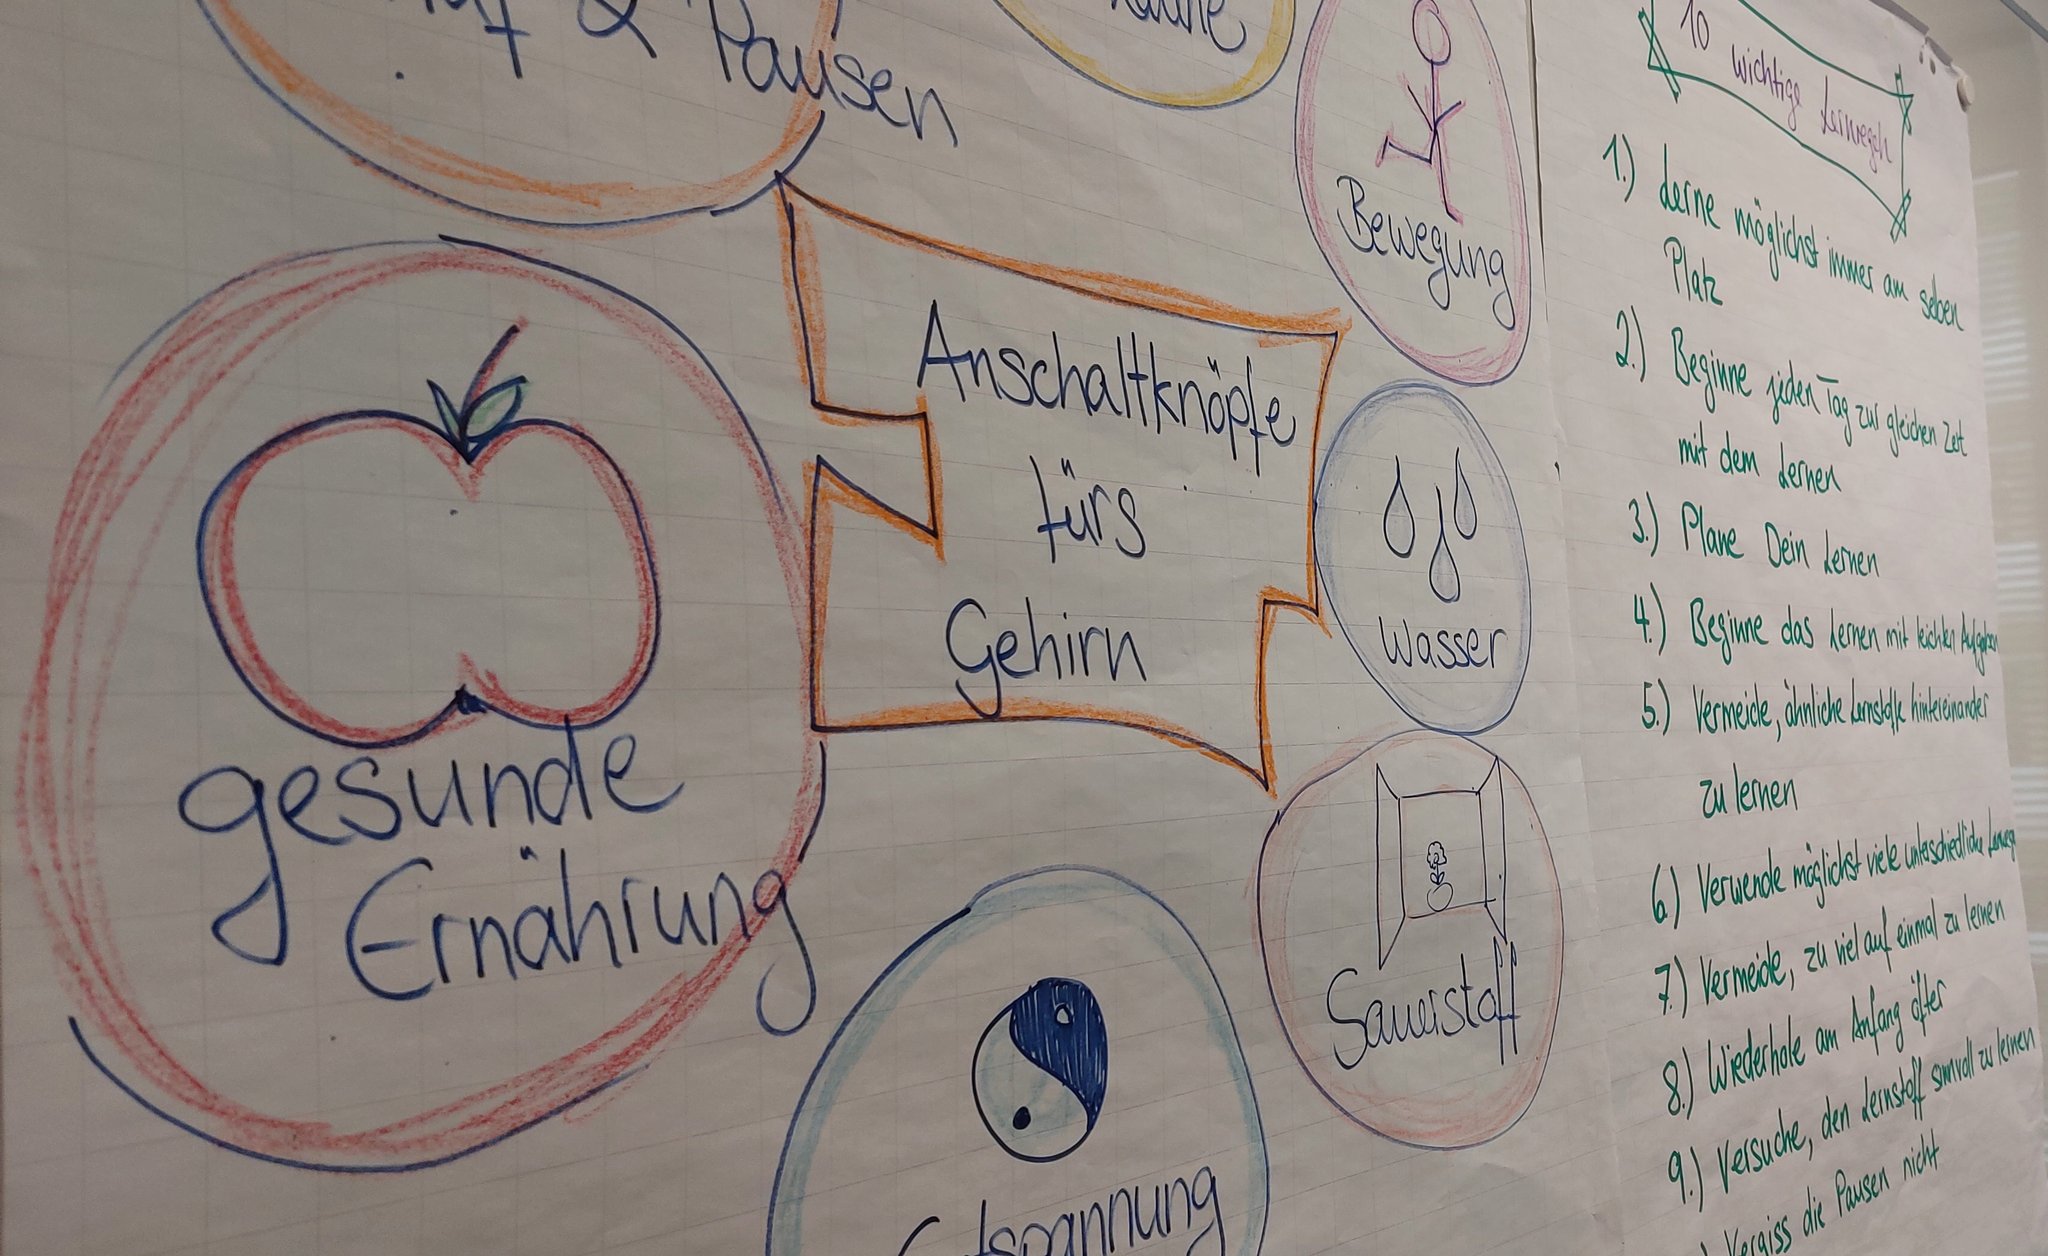 & Pausen
Bewegung
Anschaltknöpfe
fürs
Gehirn
Wasser
gesunde
Ernährung
Sauerstoff
Entspannung
10 wichtige Lernregeln
1.) Lerne möglichst immer am selben
Platz
2.) Beginne jeden Tag zur gleichen Zeit
mit dem Lernen
3.) Plane Dein Lernen
4.) Beginne das Lernen mit leichten Aufgaben
5.) Vermeide, ähnliche Lernstoffe hintereinander
zu lernen
6.) Verwende möglichst viele unterschiedliche Lernwege
7.) Vermeide, zu viel auf einmal zu lernen
8.) Wiederhole am Anfang öfter
9.) Versuche, den Lernstoff sinnvoll zu lernen
Vergiss die Pausen nicht